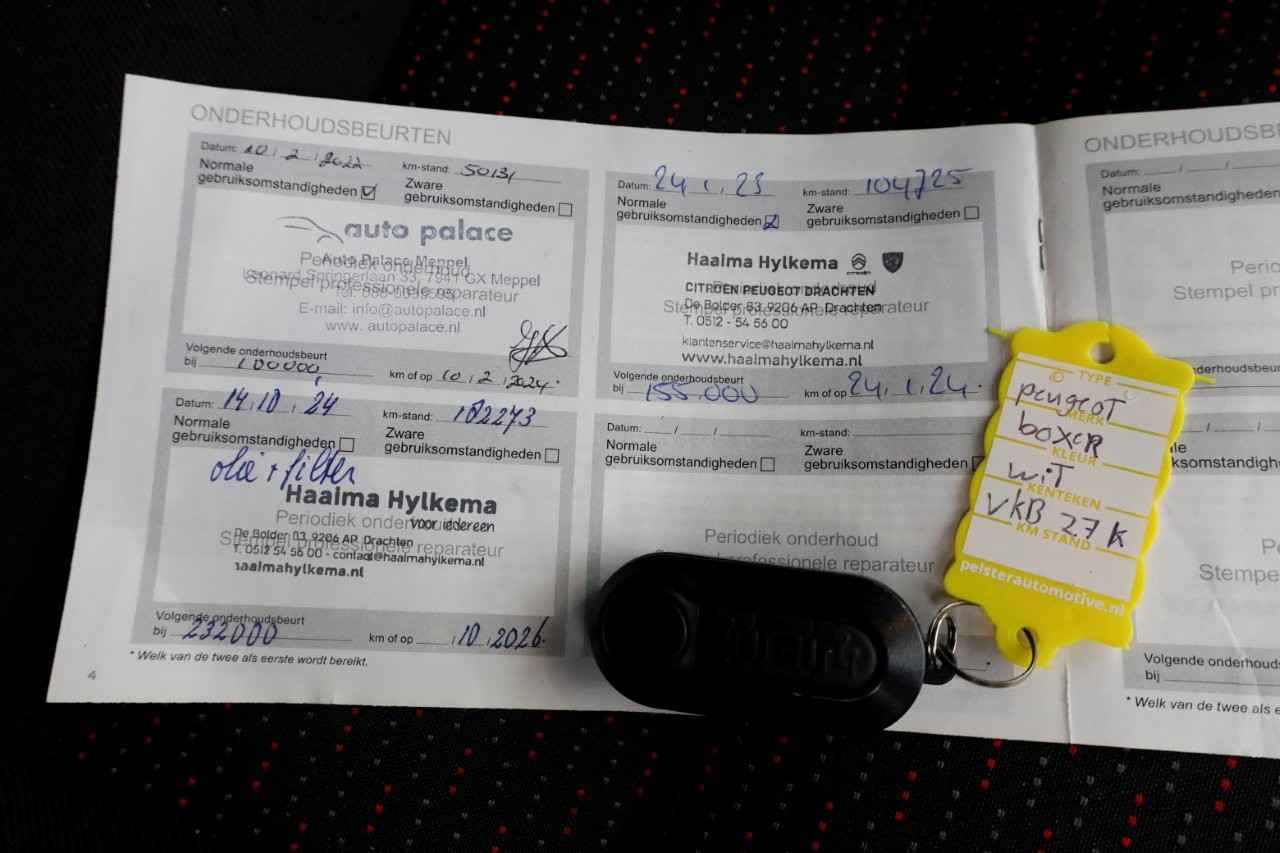 ONDERHOUDSBEURTEN
Datum: 10 / 2 / 2022 km-stand: 50131
Normale gebruiksomstandigheden ☑ Zware gebruiksomstandigheden ☐
auto palace
Auto Palace Meppel
Periodiek onderhoud
Leonard Springerlaan 33, 7941 GX Meppel
Stempel professionele reparateur
E-mail: info@autopalace.nl
www. autopalace.nl
Volgende onderhoudsbeurt
bij 100000 km of op 10 / 2 / 2024.
Datum: 24 / 1 / 23 km-stand: 104725
Normale gebruiksomstandigheden ☑ Zware gebruiksomstandigheden ☐
Haaima Hylkema
CITROEN PEUGEOT DRACHTEN
Stempel professionele reparateur
De Bolder 83 9206 AP Drachten
T. 0512 - 54 56 00
klantenservice@haaimahylkema.nl
www.haaimahylkema.nl
Volgende onderhoudsbeurt
bij 155.000 km of op 24 / 1 / 24.
Datum: 14 / 10 / 24 km-stand: 182273
Normale gebruiksomstandigheden ☐ Zware gebruiksomstandigheden ☐
olie + filter
Haaima Hylkema
voor iedereen
Periodiek onderhoud
De Bolder 83 9206 AP Drachten
Stempel professionele reparateur
T. 0512 54 56 00 - contact@haaimahylkema.nl
haaimahylkema.nl
Volgende onderhoudsbeurt
bij 232000 km of op / 10 / 2026.
Datum: / / km-stand:
Normale gebruiksomstandigheden ☐ Zware gebruiksomstandigheden
Periodiek onderhoud
professionele reparateur
* Welk van de twee als eerste wordt bereikt.
4
TYPE
peugeot
MERK
boxer
KLEUR
wit
KENTEKEN
VKB 27 K
KM STAND
pelsterautomotive.nl
ONDERHOUDSB
Datum: / /
Normale gebruiksomstandigheden
Volgende onderhoudsbeurt
bij
* Welk van de twee als